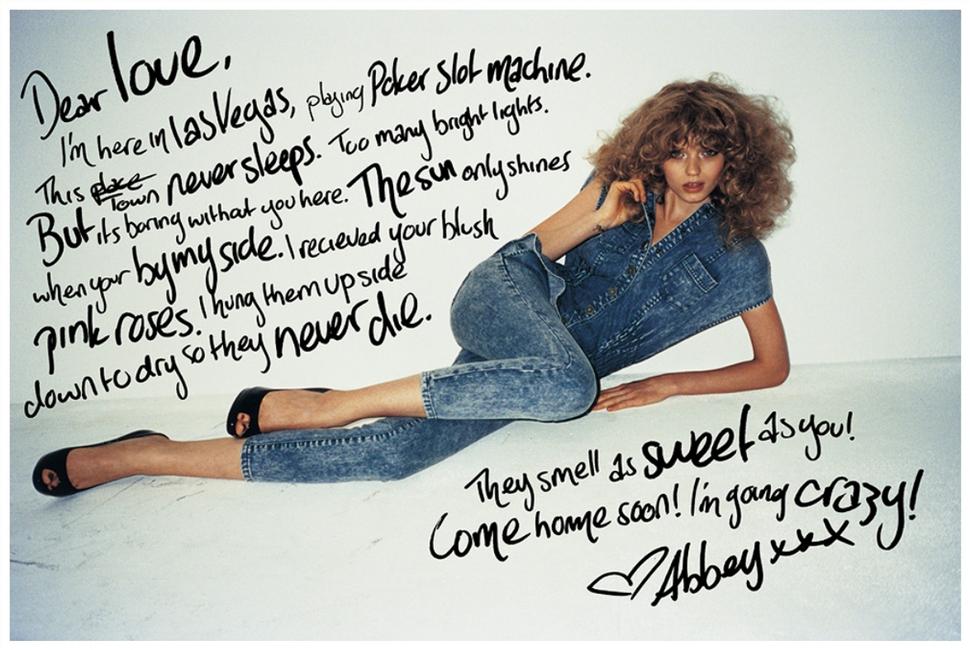 Dear love,
I'm here in las Vegas, playing Poker slot machine.
This place Town never sleeps. Too many bright lights.
But its boring without you here. The sun only shines
when your by my side. I recieved your blush
pink roses. I hung them up side
down to dry so they never die.
They smell as sweet as you!
Come home soon! I'm going crazy!
♡Abbey xxx